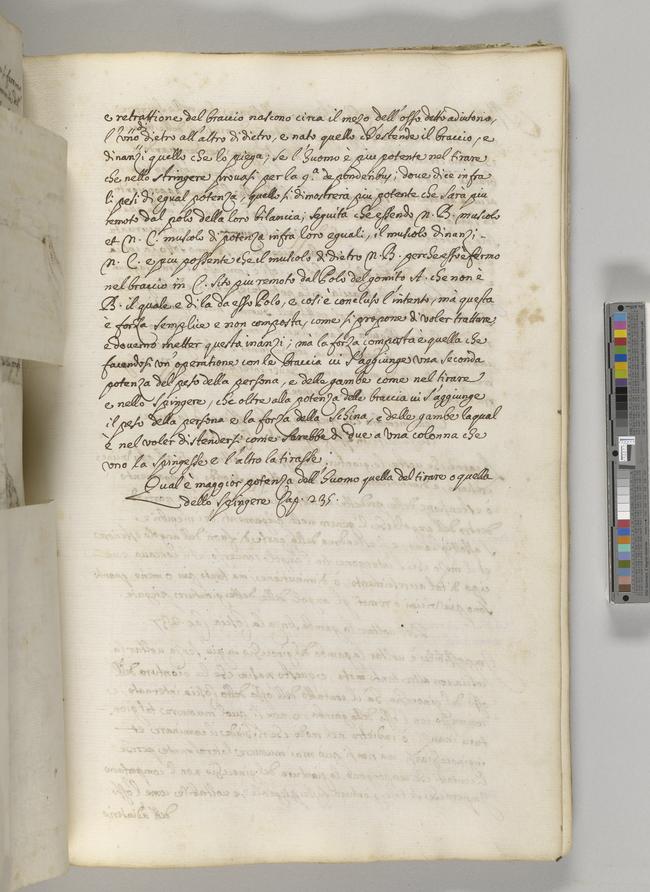 e retrattione del braccio nascono circa il mezo dell'osso detto adiutorio,
l'uno dietro all'altro di dietro, e nato quello ch'estende il braccio, e
dinanzi quello che lo piega; se l'huomo è piu potente nel tirare
che nello stringere prouasi per la 9.ª de ponderibus, doue dice infra
li pesi di egual potenza, quello si dimostrerà piu potente che sara piu
remoto dal polo della loro bilancia; seguita che essendo N. B. muscolo
et N. C. muscolo di potenza infra loro eguali, il muscolo dinanzi
N. C. e piu possente che il muscolo di dietro N. B. perche esso è fermo
nel braccio in C. sito piu remoto dal Polo del gomito A. che non è
B. il quale e di la da esso Polo, e cosi è concluso l'intento, mà questa
è forza semplice e non composta, come si propone di voler trattare,
e douemo metter questa inanzi; mà la forza composta e quella che
facendosi un'operatione con le braccia vi s'aggiunge una seconda
potenza del peso della persona, e delle gambe come nel tirare
e nello spingere, che oltre alla potenza delle braccia ui s'aggiunge
il peso della persona e la forza della schina, e delle gambe laqual
è nel voler distendersi come sarebbe di due a una colonna che
uno la spingesse e l'altro la tirasse.
Qual è maggior potenza dell'huomo quella del tirare o quella
dello spingere Cap. 235.